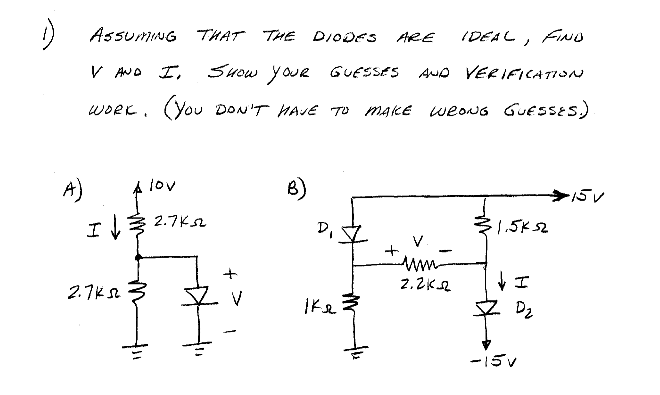 1) ASSUMING THAT THE DIODES ARE IDEAL, FIND
V AND I. SHOW YOUR GUESSES AND VERIFICATION
WORK. (YOU DON'T HAVE TO MAKE WRONG GUESSES)
A)
10V
I
2.7KΩ
2.7KΩ
+
V
-
B)
15V
D1
1.5KΩ
+ V -
2.2KΩ
I
1KΩ
D2
-15V